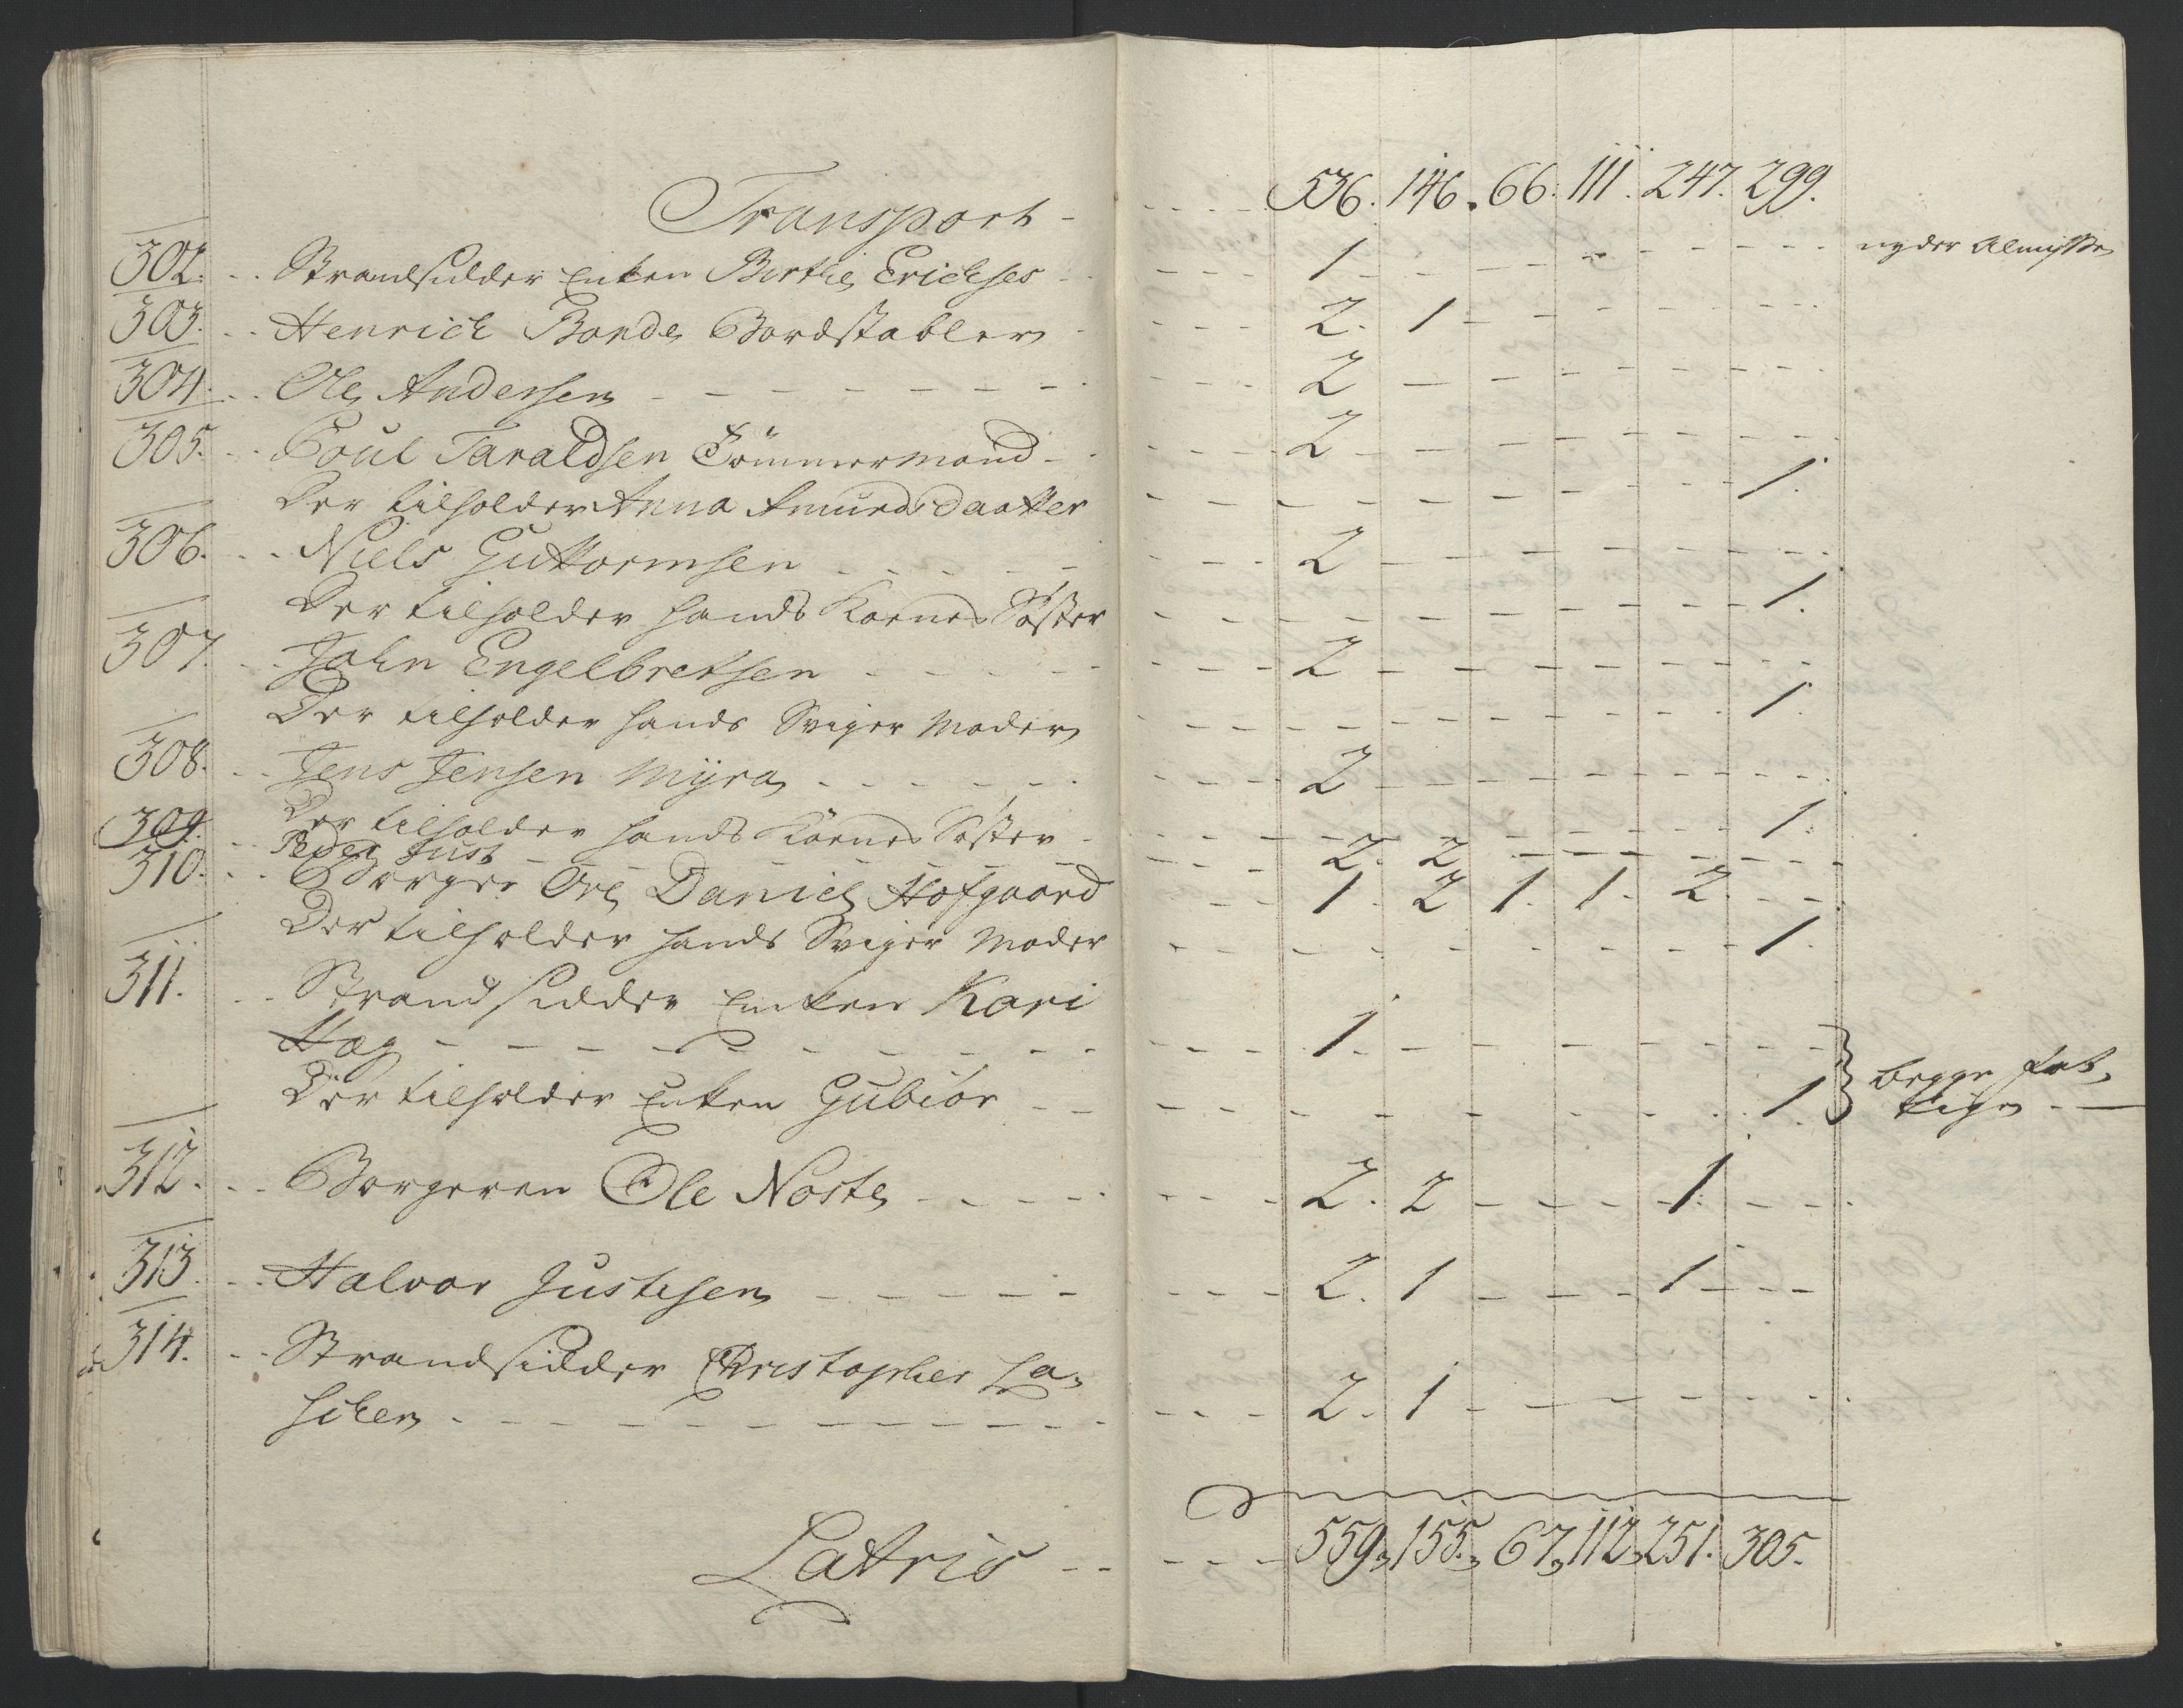 Transport - - - - - 536. 146. 66. 111. 247. 299.
302. - - Strandsidder Enken Birthe Erichses - - - - 1 - - - - - - nyder Almisse
303. - - Henrich Bonde Bordstabler - - - - 2. 1 - - - - -
304. - - Ole Andersen - - - - - - - - - 2 - - - - - -
305. - - Poul Taraldsen Tömmermand - - - - 2 - - - - - -
Der tilholder Anna Amundsdaatter - - - - - - - - 1.
306. - - Niels Guttormsen - - - - - - - 2 - - - - - -
Der tilholder hands Koenes Söster - - - - - - - - 1.
307. - - John Engelbretsen - - - - - - - 2 - - - - - -
Der tilholder hands Sviger Moder - - - - - - - - 1.
308. - - Jens Jensen Myra - - - - - - - - 2 - - - - - -
Der tilholder hands Köenes Söster - - - - - - - - 1.
309. - - Peder Just - - - - - - - - 2. 2 - - - - -
310. - - Borger Ole Daniel Hofgaard - - - 1. 2 1. 1. 2. - - -
Der tilholder hands Sviger Moder - - - - - - - - 1.
311. - - Strandsidder Enken Kari
Hog - - - - - - - - - - 1. - - - - - -
Der tilholder Enken Gubiör - - - - - - - - - 1. } begge fat,
tige - -
312. - - Borgeren Ole Noste - - - - - - - 2. 2 - - - 1. - - -
313. - - Halvor Justesen - - - - - - - 2. 1 - - - 1 - - -
314. - - Strandsidder Christopher La,
sichen - - - - - - - - - - - 2. 1 - - - - - -
Lateris - - - - - 559, 155., 67, 112, 251. 305.